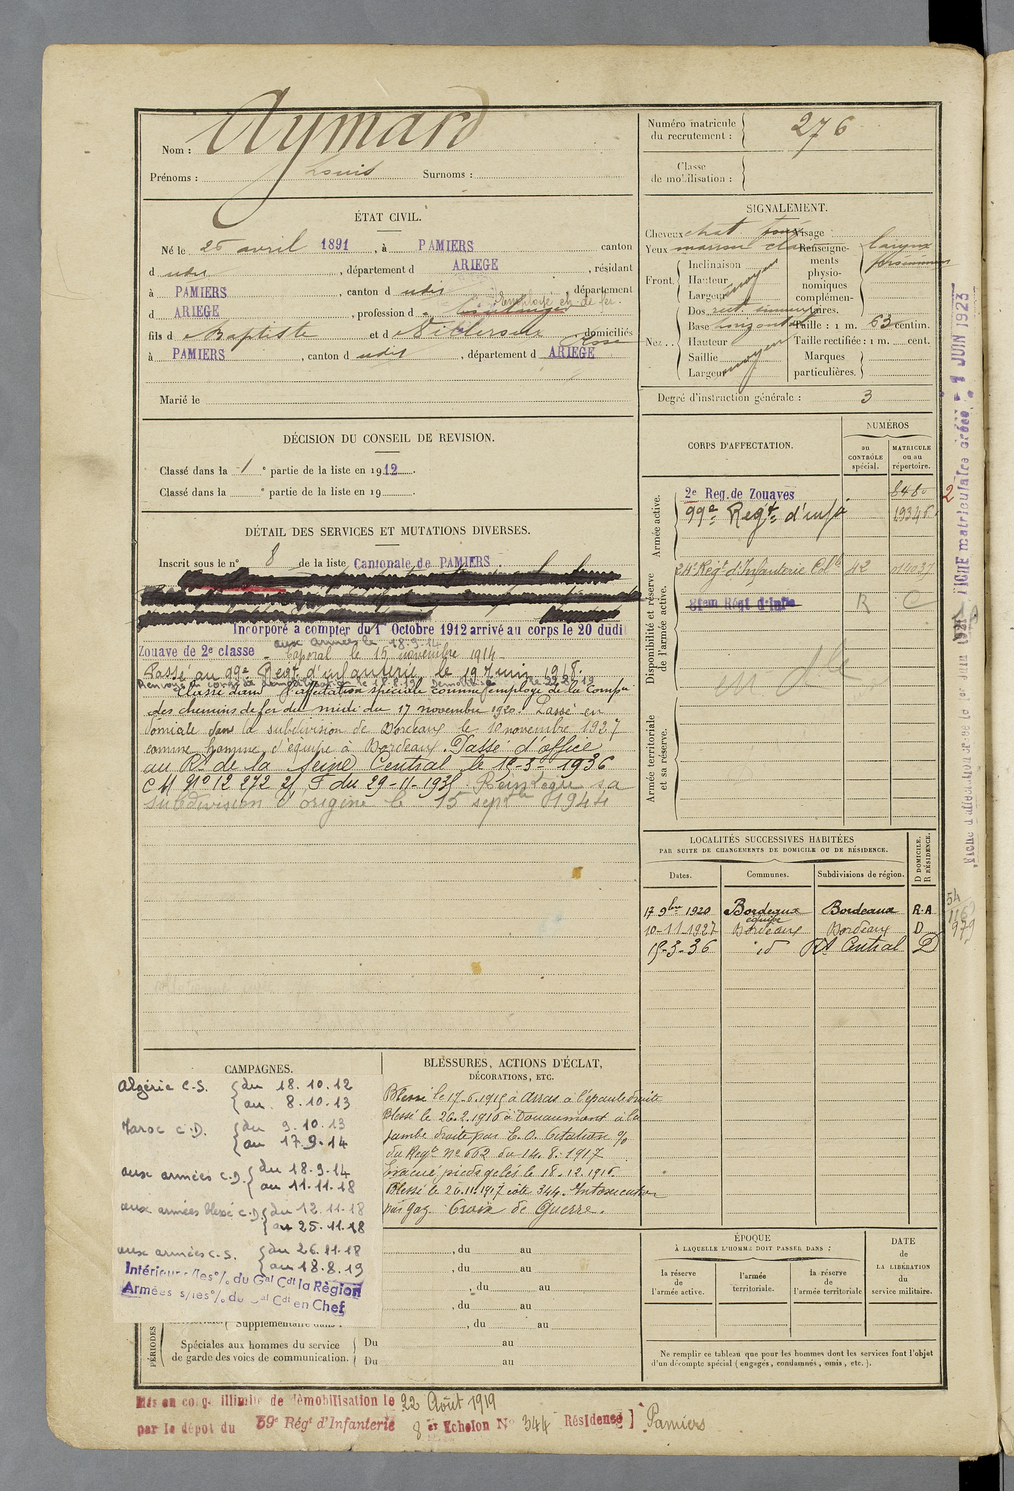 Nom : Aymard
Prénoms : Louis Surnoms :
Numéro matricule du recrutement : 276
Classe de mobilisation :
ÉTAT CIVIL.
Né le 25 avril 1891, à PAMIERS canton
d udit, département d ARIEGE, résidant
à PAMIERS, canton d udit département
Employé ch. de fer.
d ARIEGE, profession d
fils d Baptiste et d domiciliés
à PAMIERS, canton d udit, département d ARIEGE
Marié le
SIGNALEMENT.
Cheveux chat
Yeux marron clair
Front Inclinaison
Hauteur moyen
Largeur
Nez Dos rect
Base horizontale
Hauteur
Saillie moyen
Largeur
Visage
Renseignements physionomiques complémentaires.
Taille : 1 m. 63 centim.
Taille rectifiée : 1 m. cent.
Marques particulières.
Degré d'instruction générale : 3
DÉCISION DU CONSEIL DE REVISION.
Classé dans la 1e partie de la liste en 1912.
Classé dans la e partie de la liste en 19
CORPS D'AFFECTATION.
NUMÉROS
au CONTRÔLE spécial.
MATRICULE ou au répertoire.
Armée active.
2e Reg. de Zouaves 8480
99e Regt d'infie 19345
Disponibilité et réserve de l'armée active.
Regt d'Infanterie Colle 42
Régt d'Infie R C
Armée territoriale et sa réserve.
DÉTAIL DES SERVICES ET MUTATIONS DIVERSES.
Inscrit sous le n° 8 de la liste Cantonale de PAMIERS.
Incorporé à compter du 1r Octobre 1912 arrivé au corps le 20 dudit
aux armées le 18-9-14
Zouave de 2e classe Caporal le 15 novembre 1914
Passé au 99e Regt d'infanterie le 19 juin 1918.
Classé dans l'affectation spéciale comme employé de la Compie
des chemins de fer du midi du 17 novembre 1920. Passé en
domicile dans la subdivision de Bordeaux le 10 novembre 1927
comme homme d'équipe à Bordeaux. Passé d'office
au Rt de la Seine Central le 15-3-1936
C M N° 12 272 2/ F du 29-11-1935 Réintégré sa
subdivision d'origine le 15 septbre 1944
LOCALITÉS SUCCESSIVES HABITÉES
PAR SUITE DE CHANGEMENTS DE DOMICILE OU DE RÉSIDENCE.
Dates. Communes. Subdivisions de région. D DOMICILE. R RÉSIDENCE.
17 9bre 1920 Bordeaux Bordeaux R.A
10-11-1927 Bordeaux Bordeaux D
15-3-36 id Rt Central D
CAMPAGNES.
Algérie C.S. du 18.10.12
au 8.10.13
Maroc C.D. du 9.10.13
au 17.9.14
aux armées C.D. du 18.9.14
au 11.11.18
aux armées blessé C.D. du 12.11.18
au 25.11.18
aux armées C.S. du 26.11.18
au 18.8.19
Intérieur s/les % du Gal Cdt la Région
Armées s/les % du Gal Cdt en Chef
BLESSURES, ACTIONS D'ÉCLAT,
DÉCORATIONS, ETC.
Blessé le 17-6-1915 à Arras à l'épaule droite
Blessé le 26.2.1916 à Douaumont à la
jambe droite par E.O. Citation %
du Regt N° 662 du 14.8.1917
Evacué pieds gelés le 18.12.1916
Blessé le 26.11.1917 côte 344. Intoxication
par gaz Croix de Guerre.
, du au
, du au
, du au
, du au
, du au
PÉRIODES
Supplémentaire dans
Spéciales aux hommes du service de garde des voies de communication. Du au
Du au
ÉPOQUE
À LAQUELLE L'HOMME DOIT PASSER DANS :
la réserve de l'armée active.
l'armée territoriale.
la réserve de l'armée territoriale
DATE de LA LIBÉRATION du service militaire.
Ne remplir ce tableau que pour les hommes dont les services font l'objet
d'un décompte spécial (engagés, condamnés, omis, etc.).
Mis en cong. illimité de démobilisation le 22 Août 1919
par le dépôt du 59e Régt d'Infanterie 8 er Echelon N° 344 Résidence Pamiers
FICHE matriculaire créée 1 JUIN 1923